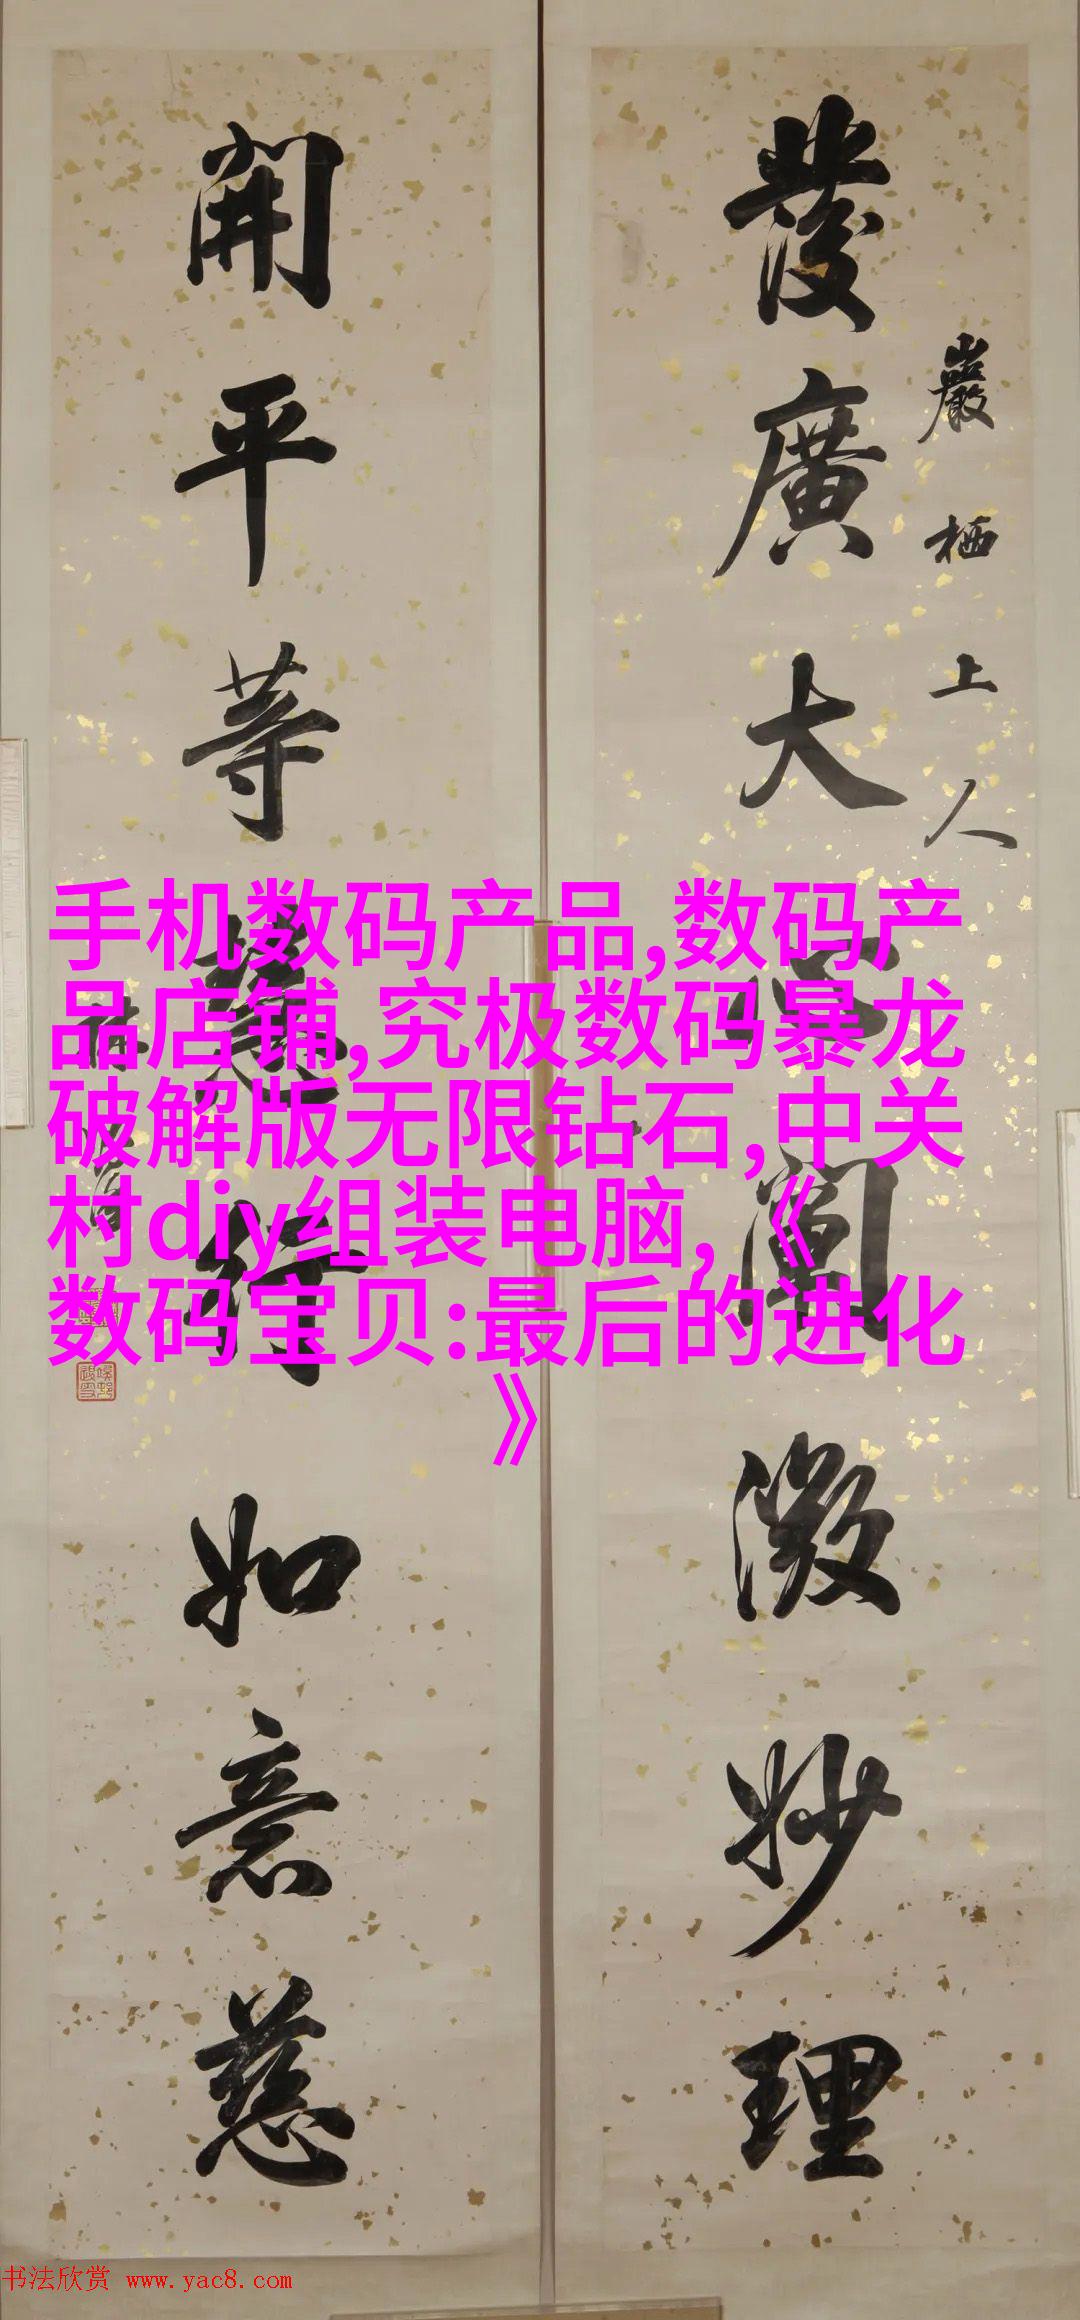 發廣大心闡微妙理
巖栖上人
開平等慧行如意慈
手机数码产品,数码产
品店铺,究极数码暴龙
破解版无限钻石,中关
村diy组装电脑,《
数码宝贝:最后的进化
》
书法欣赏 www.yac8.com